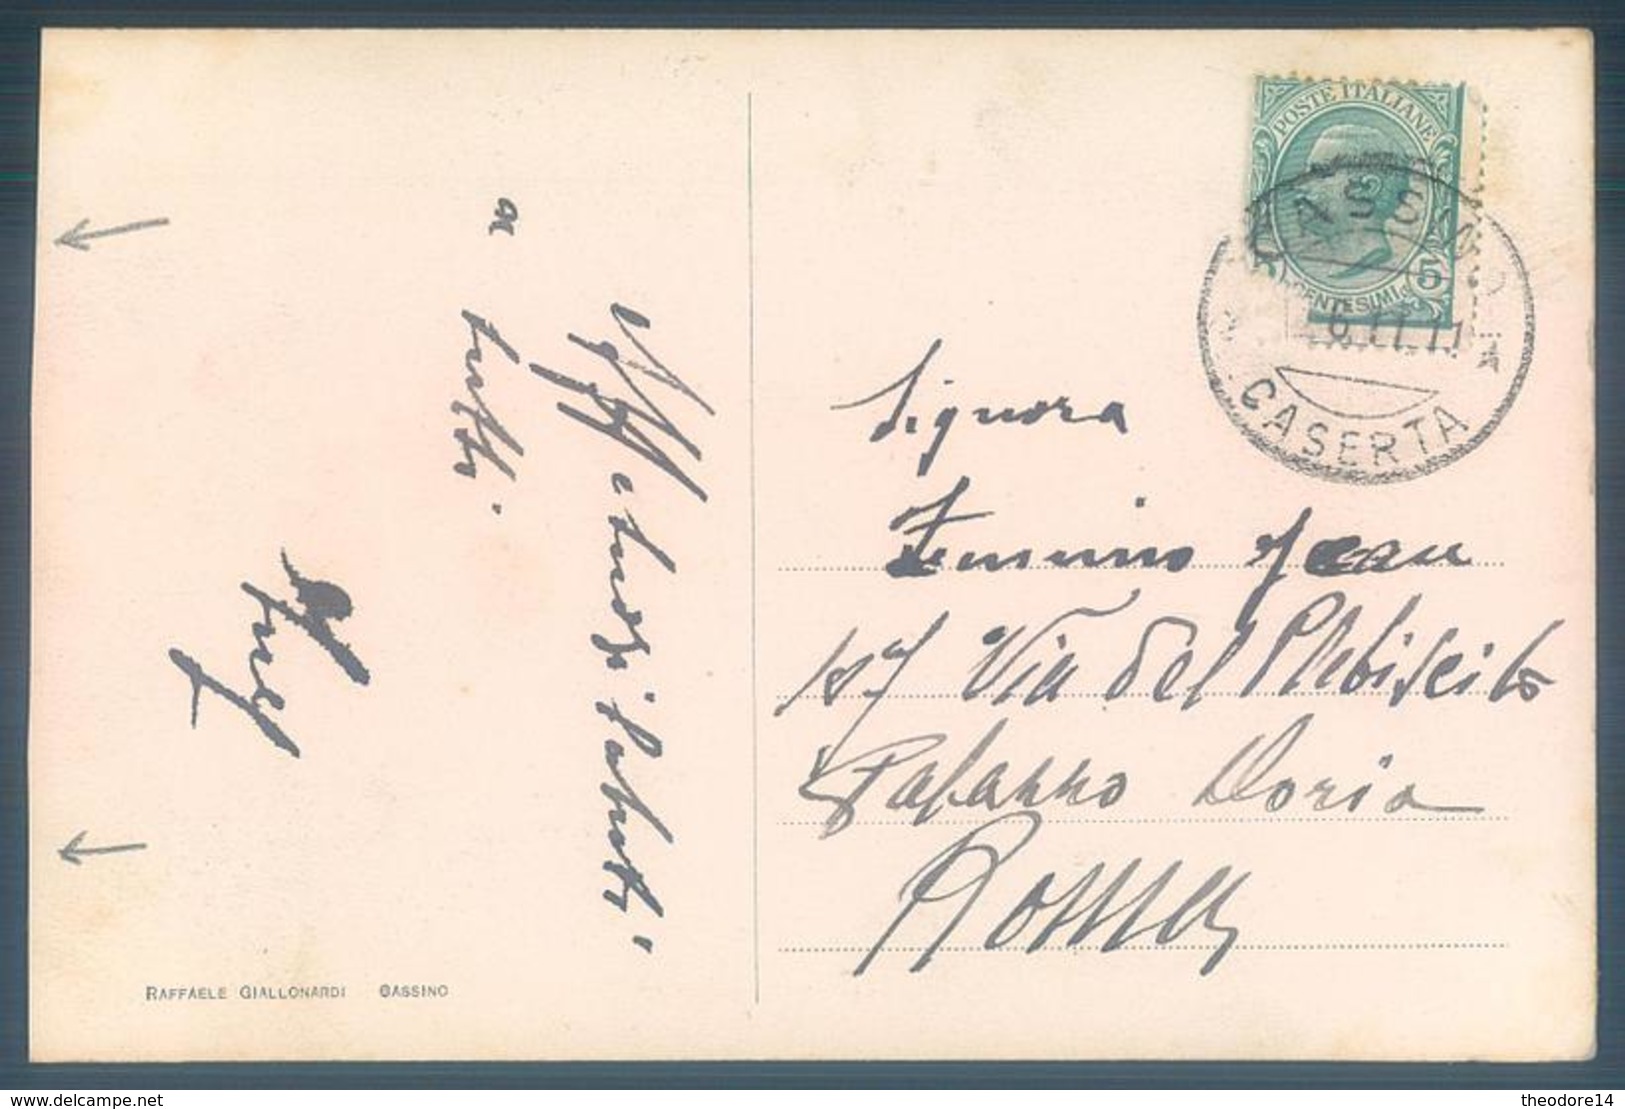 Affettuosi saluti
a tutti
RAFFAELE GIALLONARDI CASSINO
POSTE ITALIANE
5
CENTESIMI
CASSINO
6.11.11
CASERTA
Signora
Jean
Via del Plebiscito
Palazzo Doria
Roma
www.delcampe.net
theodore14